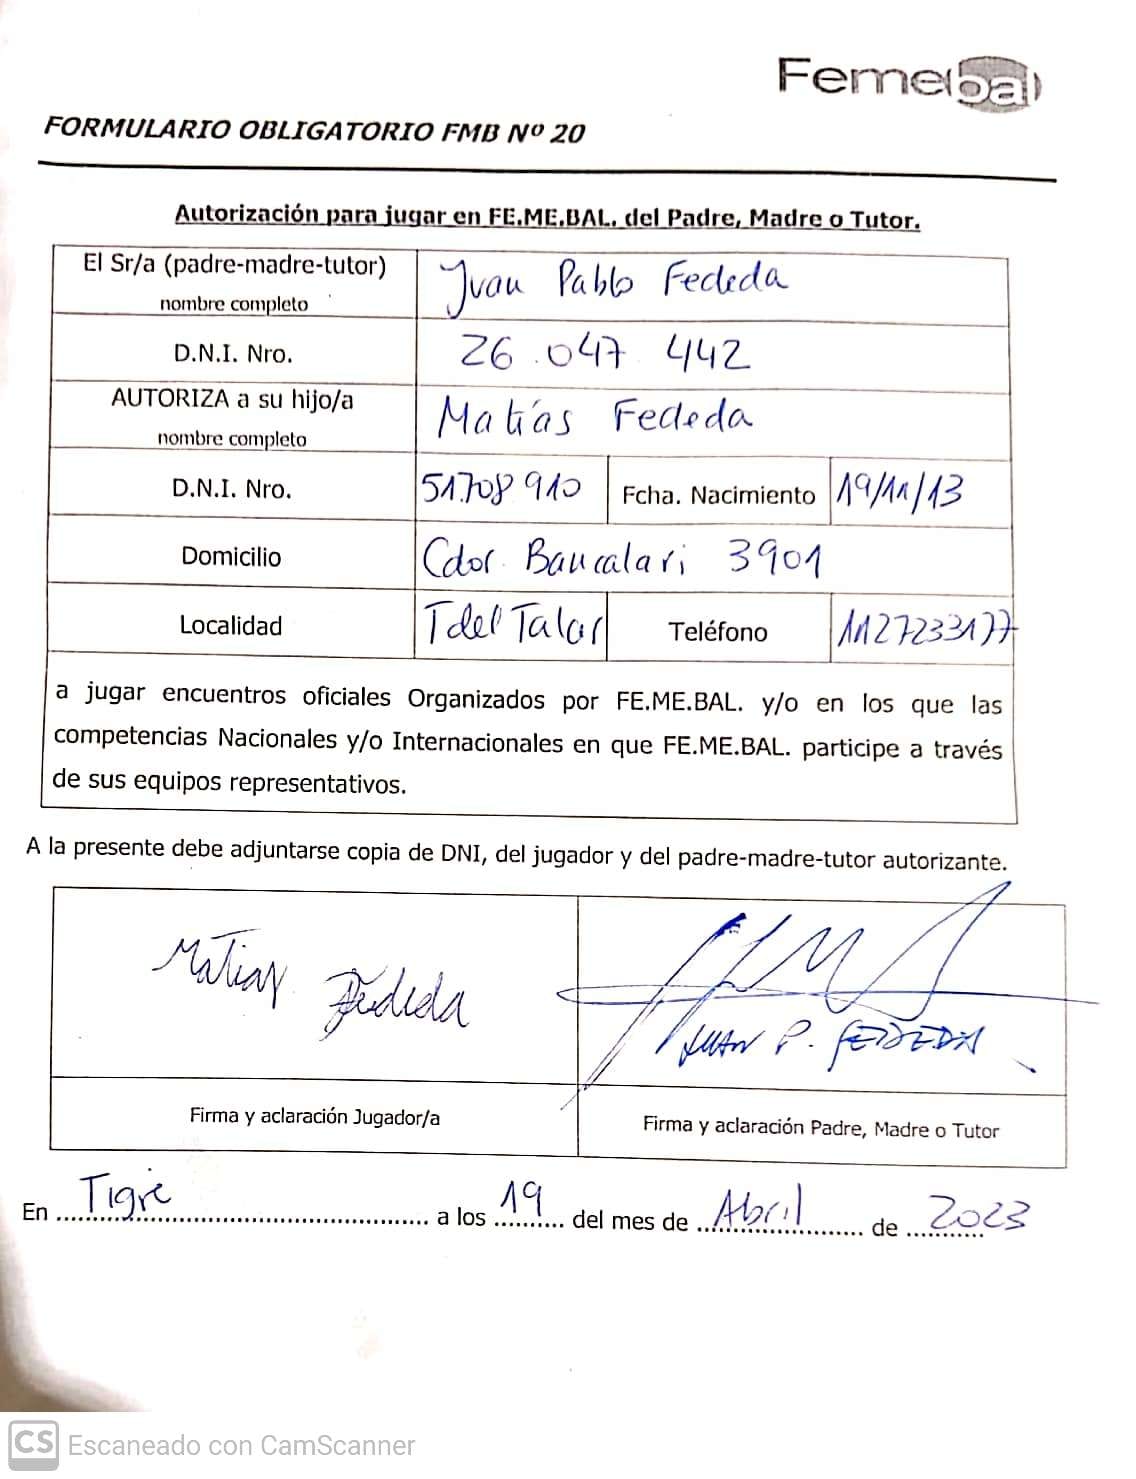 Femebal
FORMULARIO OBLIGATORIO FMB Nº 20
Autorización para jugar en FE.ME.BAL. del Padre, Madre o Tutor.
El Sr/a (padre-madre-tutor) nombre completo Juan Pablo Fededa
D.N.I. Nro. 26.047 442
AUTORIZA a su hijo/a nombre completo Matías Fededa
D.N.I. Nro. 51.708 910 Fcha. Nacimiento 19/11/13
Domicilio Cdor. Bancalari 3901
Localidad T del Talar Teléfono 1127233177
a jugar encuentros oficiales Organizados por FE.ME.BAL. y/o en los que las
competencias Nacionales y/o Internacionales en que FE.ME.BAL. participe a través
de sus equipos representativos.
A la presente debe adjuntarse copia de DNI, del jugador y del padre-madre-tutor autorizante.
Matias Fededa
JUAN P. FEDEDA
Firma y aclaración Jugador/a Firma y aclaración Padre, Madre o Tutor
En Tigre a los 19 del mes de Abril de 2023
CS Escaneado con CamScanner